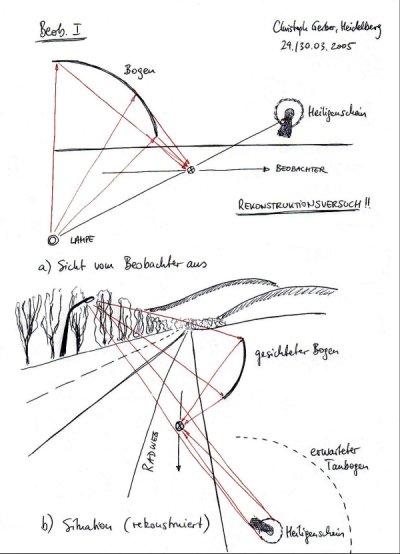 Beob. I
Christoph Gerber, Heidelberg
29./30.03.2005
Bogen
Heiligenschein
BEOBACHTER
REKONSTRUKTIONSVERSUCH!!
LAMPE
a) Sicht vom Beobachter aus
gesichteter Bogen
RADWEG
erwarteter
Taubogen
Heiligenschein
b) Situation (rekonstruiert)